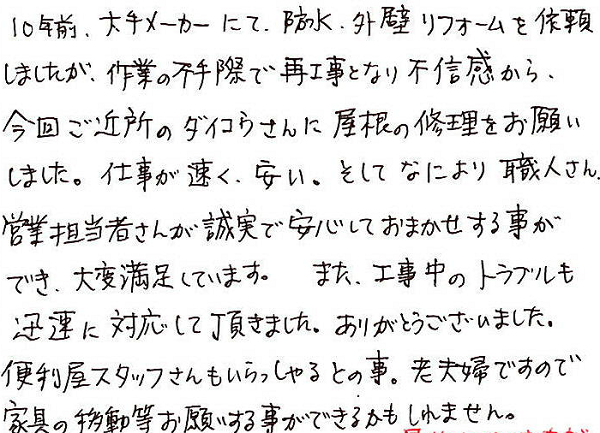 10年前、大手メーカーにて、防水、外壁リフォームを依頼
しましたが、作業の不手際で再工事となり不信感から、
今回ご近所のダイコウさんに屋根の修理をお願い
しました。仕事が速く、安い。そしてなにより職人さん、
営業担当者さんが誠実で安心しておまかせする事が
でき、大変満足しています。 また、工事中のトラブルも
迅速に対応して頂きました。ありがとうございました。
便利屋スタッフさんもいらっしゃるとの事。老夫婦ですので
家具の移動等お願いする事ができるかもしれません。